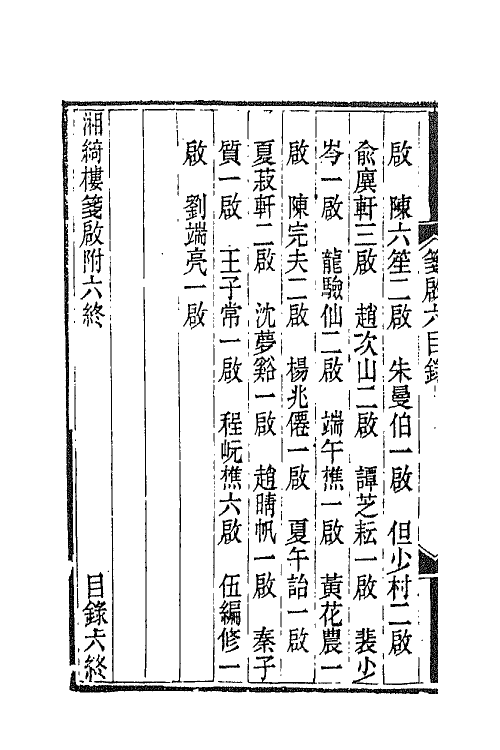 箋啟六目錄
啟　陳六笙二啟　朱曼伯一啟　但少村二啟
俞廙軒三啟　趙次山二啟　譚芝耘一啟　裴少
岑一啟　龍驗仙二啟　端午樵一啟　黃花農一
啟　陳完夫二啟　楊兆僊一啟　夏午詒一啟
夏菽軒二啟　沈夢谿一啟　趙晴帆一啟　秦子
質一啟　王子常一啟　程岏樵六啟　伍編修一
啟　劉端亮一啟
湘綺樓箋啟附六終　目錄六終